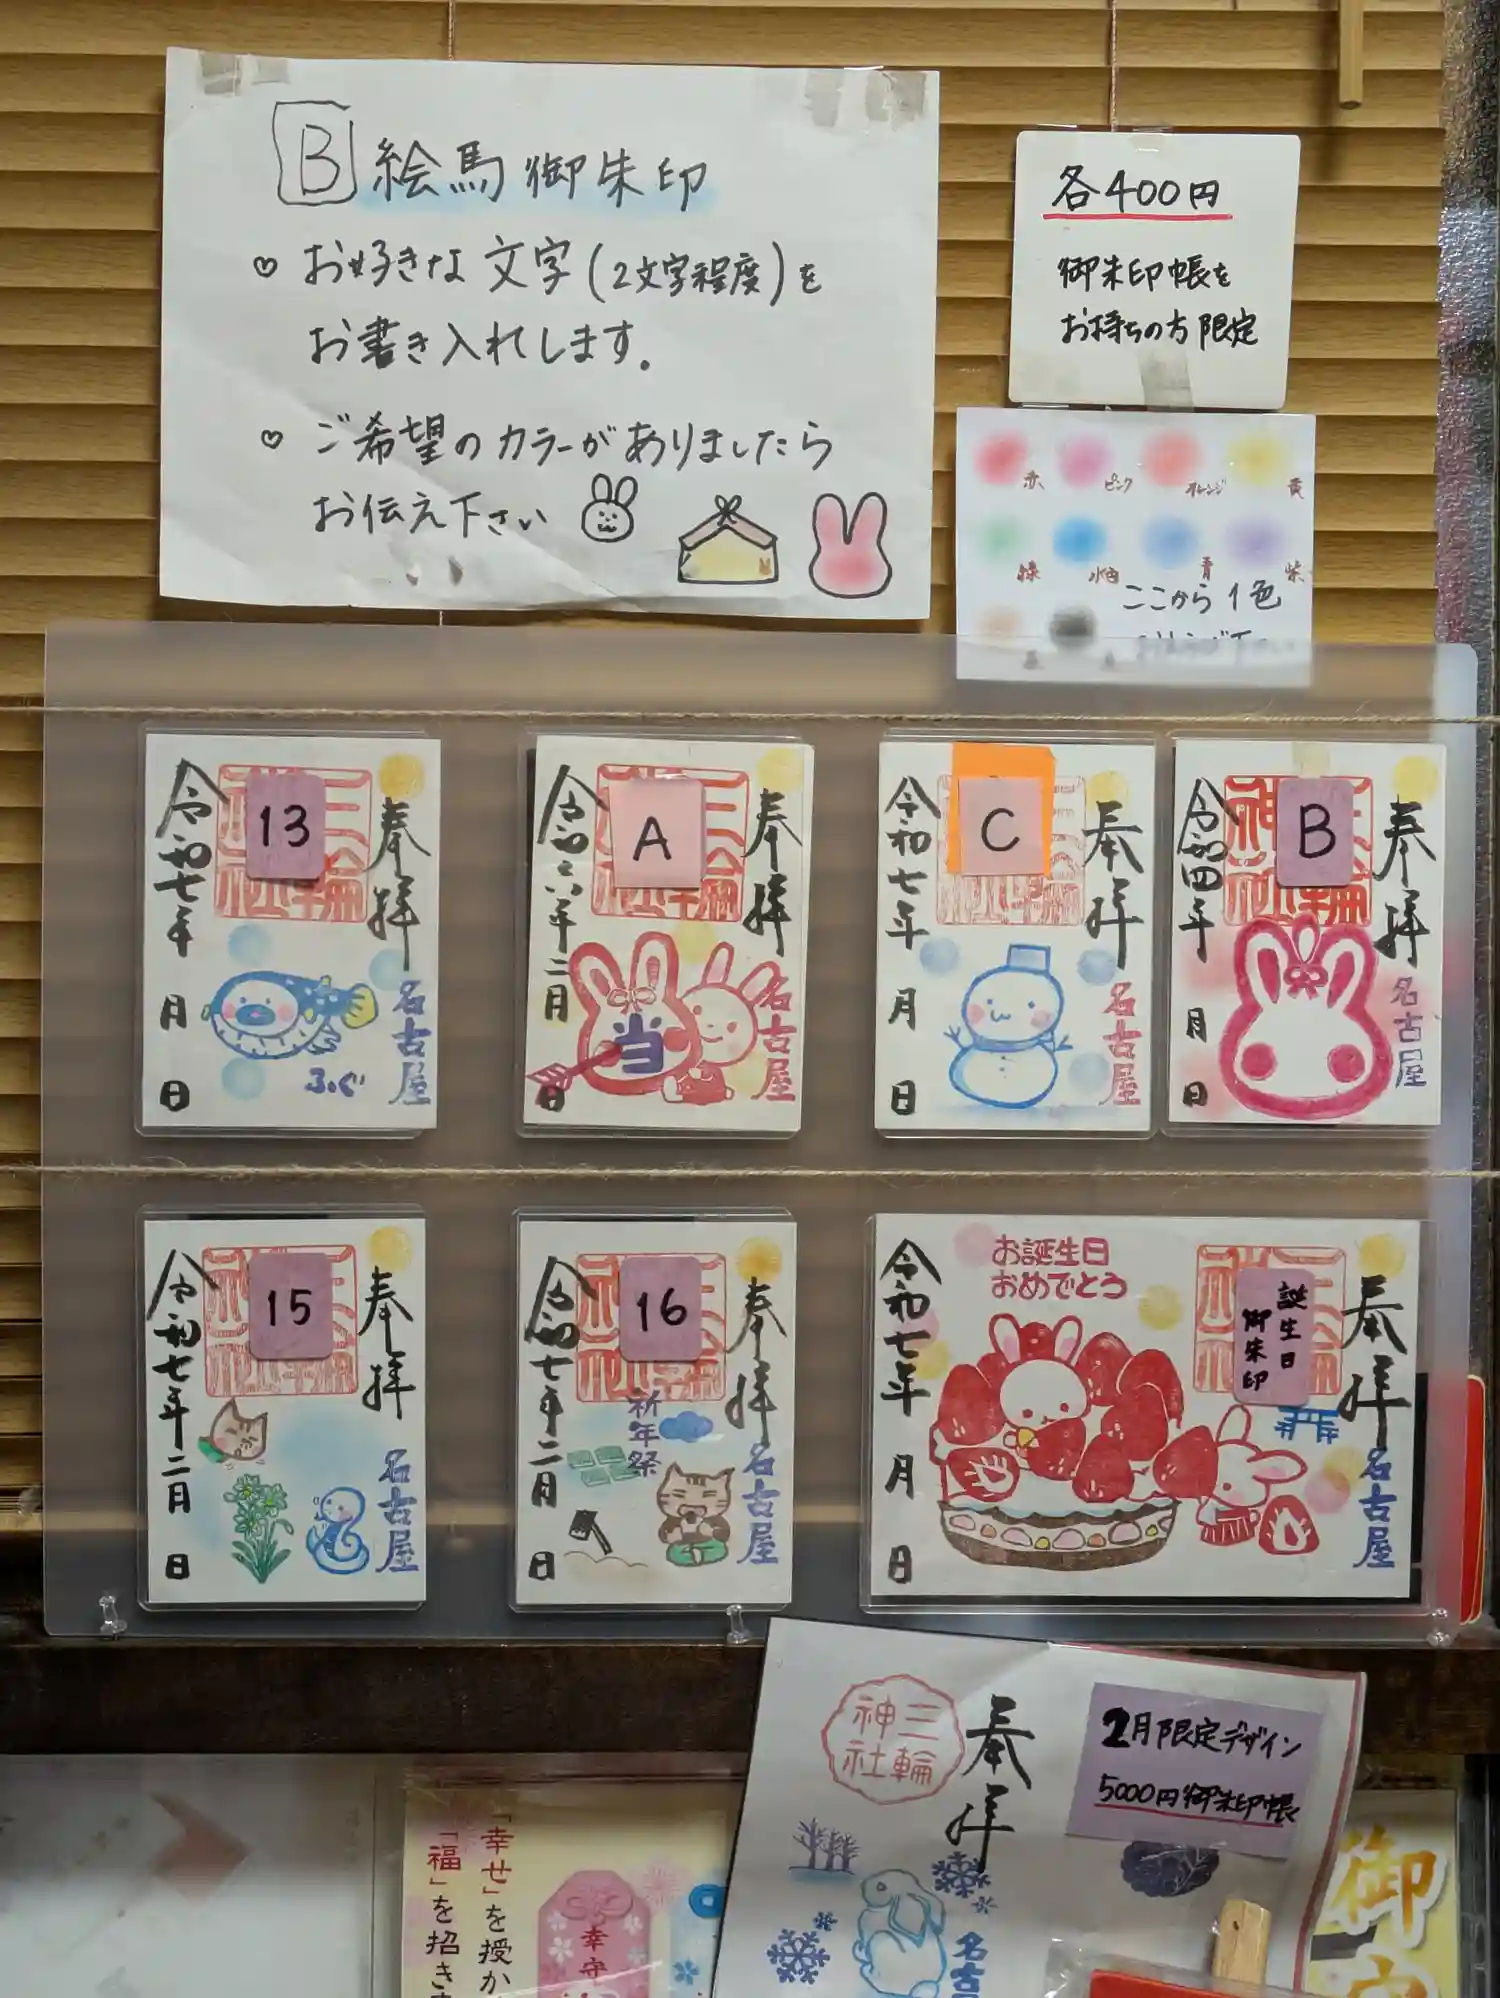 B 絵馬御朱印
♡ お好きな文字(2文字程度)を
お書き入れします.
♡ ご希望のカラーがありましたら
お伝え下さい
各400円
御朱印帳を
お持ちの方限定
赤 ピンク オレンジ 黄
緑 水色 青 紫
ここから1色
13
奉拝
令和七年 月 日
ふぐ
名古屋
A
奉拝
令和六年二月 日
当
名古屋
C
奉拝
令和七年 月 日
名古屋
B
奉拝
令和四年 月 日
名古屋
15
奉拝
令和七年二月 日
名古屋
16
奉拝
令和七年二月 日
祈年祭
名古屋
お誕生日
おめでとう
誕生日
御朱印
奉拝
令和七年 月 日
名古屋
三輪
神社
奉拝
2月限定デザイン
5000円御朱印帳
名古
「幸せ」を授か
「福」を招き
幸守
御